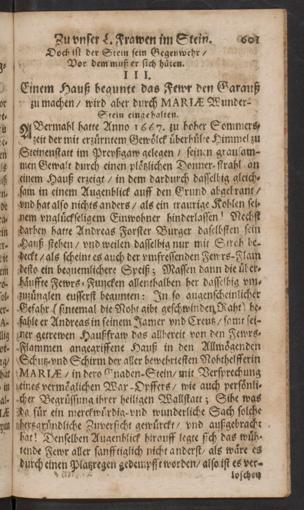 Zu vnser L. Frawen im Stein. 601
Doch ist der Stein sein Gegenwehr /
Vor dem muß er sich hüten.
III.
Einem Hauß begunte das Fewr den Garauß
zu machen / wird aber durch MARIÆ Wunder-
Stein eingehalten.
Abermahl hatte Anno 1667. zu hoher Sommers-
zeit der mit erzürntem Gewölck überhülte Himmel zu
Steinenstatt im Preyßgaw gelegen / seinen grausam-
men Gewalt durch einen plötzlichen Donner-strahl an
einem Hauß erzeigt / in dem dardurch dasselbig gleich-
sam in einem Augenblick auff den Grund abgebrant /
vnd hat also nichts anders / als ein traurige Kohlen sei-
nem vnglückseligem Einwohner hinderlassen! Nechst
darben hatte Andreas Forster Burger daselbsten sein
Hauß stehen / vnd weilen dasselbig nur mit Stroh be-
deckt / als scheint es auch der vmfressenden Fewrs-Flam
desto ein bequemlichere Speiß; Massen dann die über-
häuffte Fewrs-Funcken allenthalben her dasselbig vm-
zünglen eusserst begunten: In so augenscheinlicher
Gefahr (sintemal die Noht gibt geschwinden Raht) be-
fahle er Andreas in seinem Jamer vnd Creutz / samt sei-
ner getrewen Haußfraw das allbereit von den Fewrs-
Flammen angegriffene Hauß in den Allmögenden
Schutz vnd Schirm der aller bewehrtesten Nothelfferin
MARIÆ / in dero Gnaden-Stein / mit Versprechung
eines vermöglichen War-Opffers / wie auch persönli-
cher Begrüssung ihrer heiligen Wallstatt; Sihe was
da für ein merckwürdig- vnd wunderliche Sach solche
vhrgründliche Zuversicht gewürckt / vnd außgebracht
hat! Denselben Augenblick hierauff legte sich das wüh-
tende Fewr aller sanfftiglich nicht anderst / als wäre es
durch einen Platzregen gedempfft worden / also ist es ver-
loschen